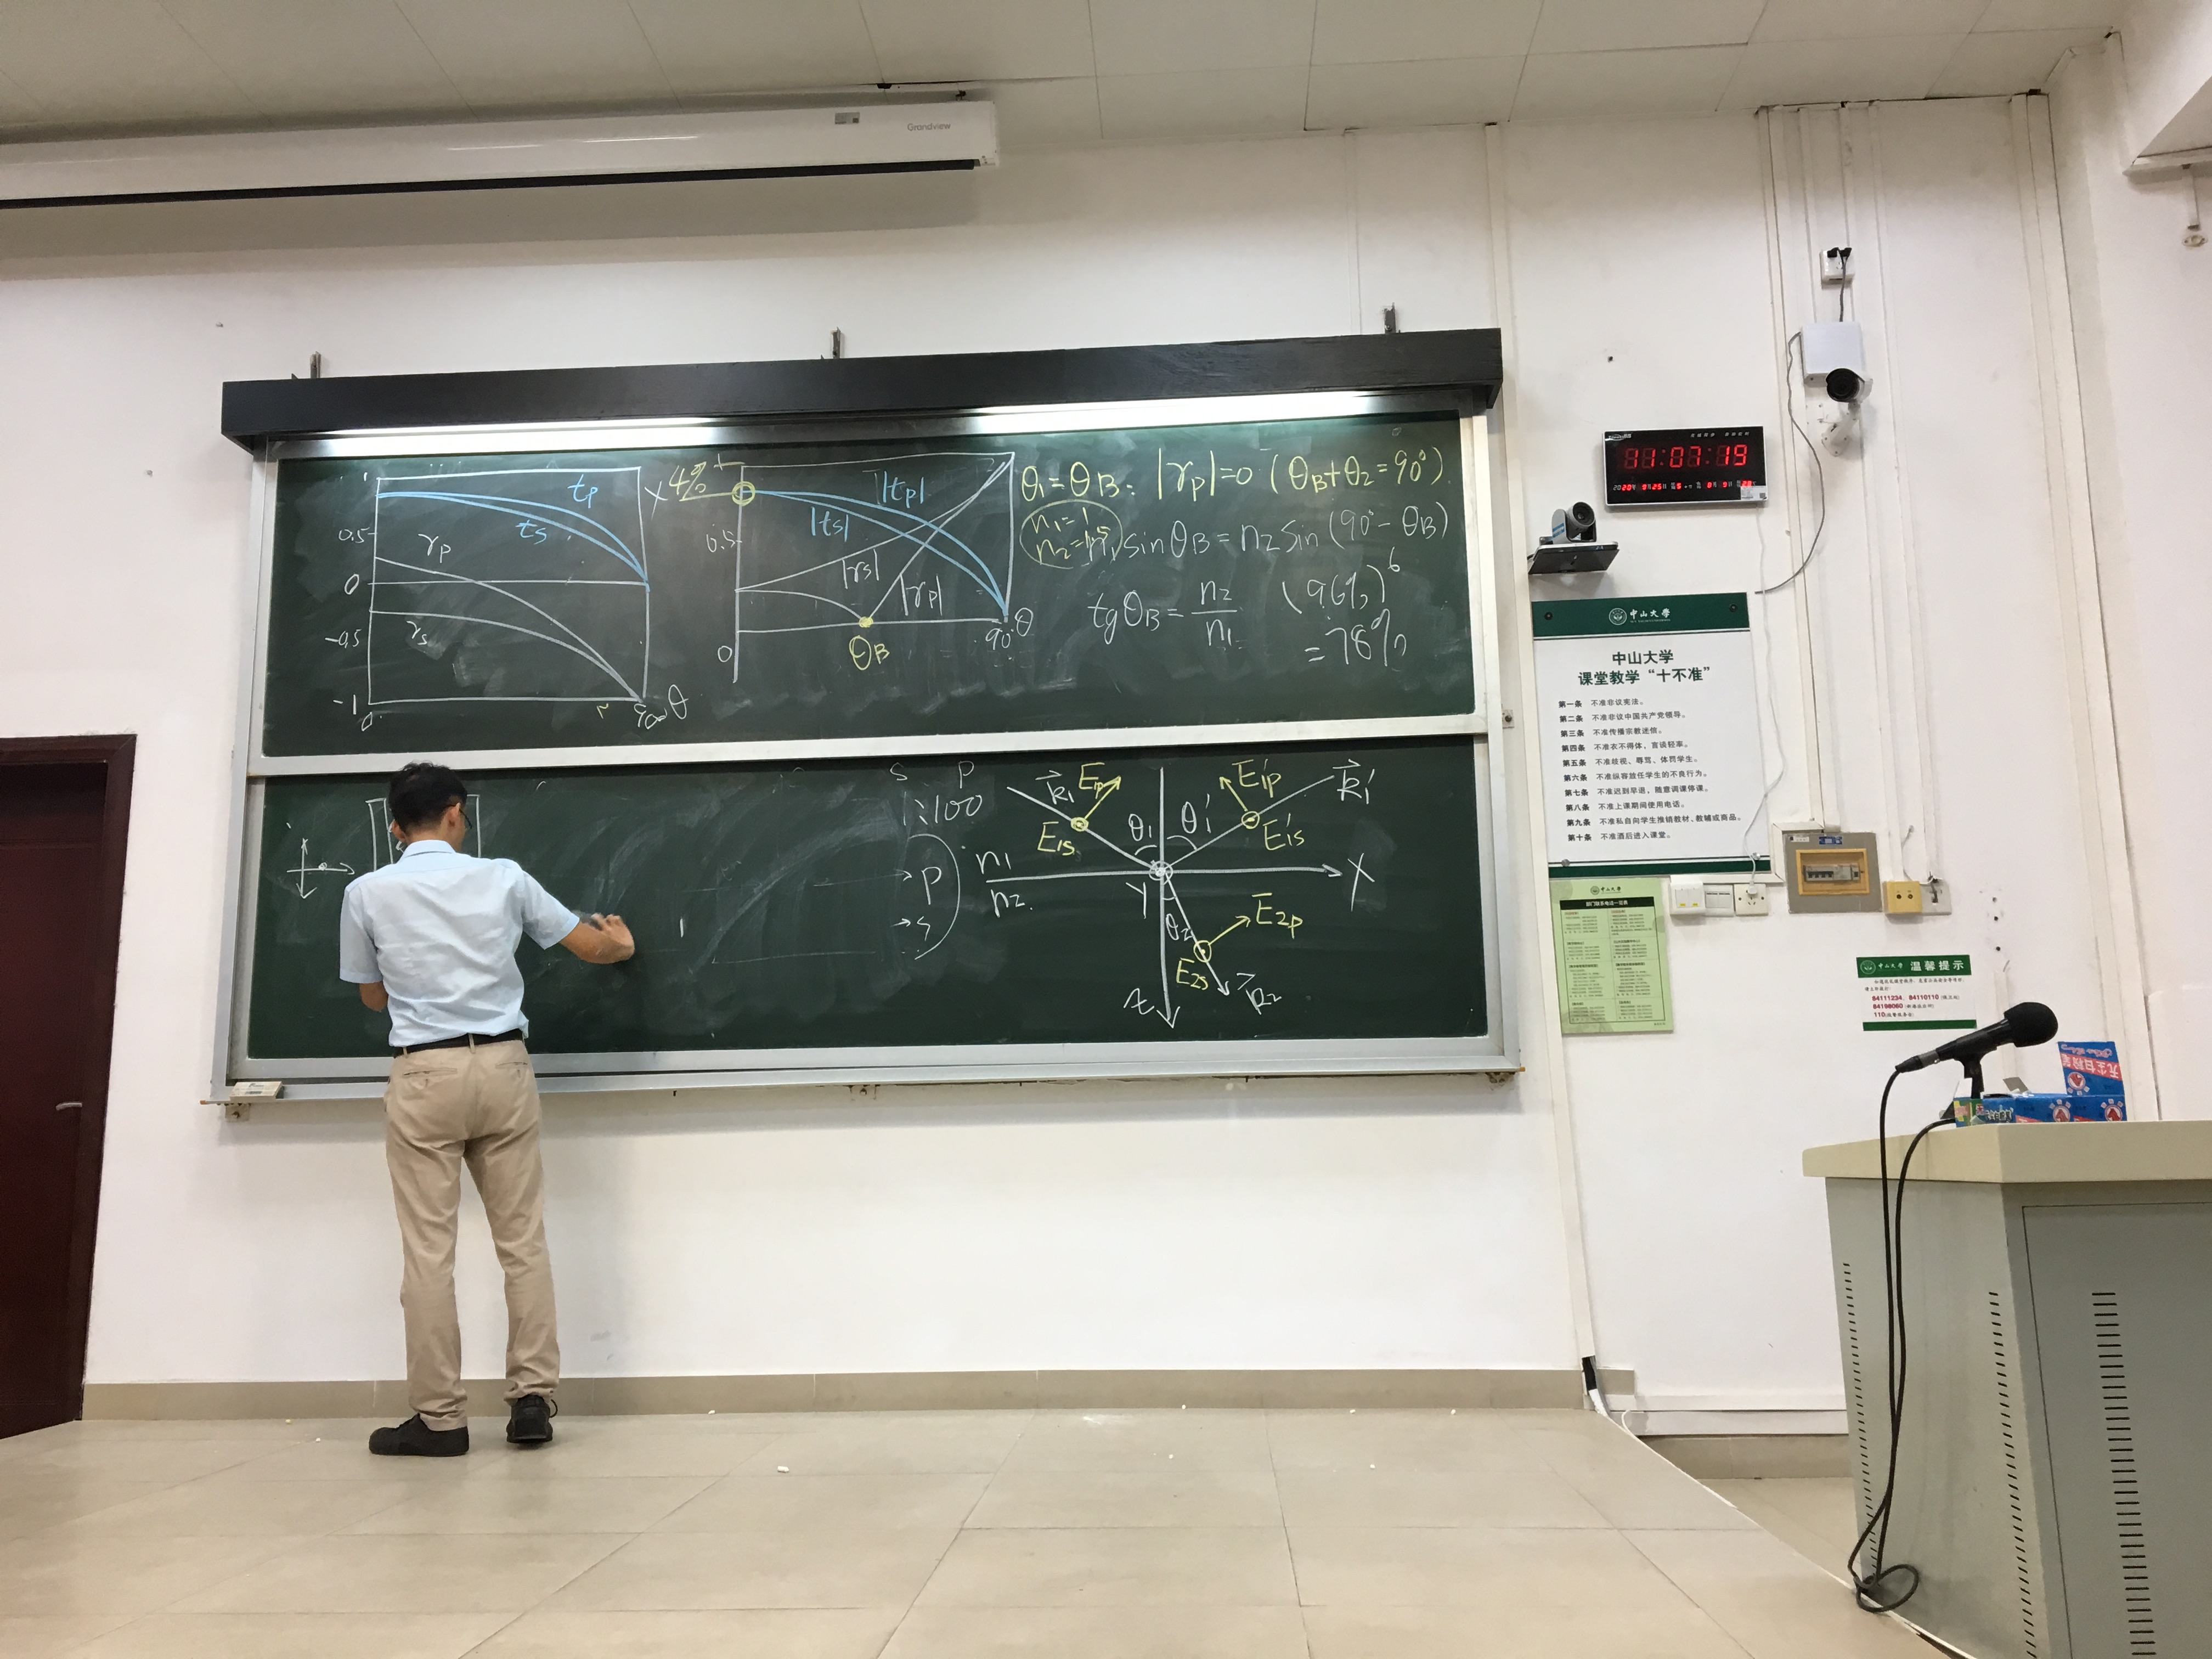 Grandview
1
0.5
0
-0.5
-1
0
tp
ts
rp
rs
90° θ
4%
1
0.5
0
|tp|
|ts|
|rs|
|rp|
θB
90° θ
θ1 = θB: |rp|=0 (θB+θ2=90°)
n1=1
n2=1.5
n1 sinθB = n2 sin (90°- θB)
tgθB = n2/n1
(96%)^6
=78%
S P
1:100
→P
→S
k1 E1p
E1s
θ1 θ1'
E1'p k1'
E1's
n1
n2
Y X
θ2
E2p
E2s
k2
z
11:07:19
中山大学
中山大学
课堂教学“十不准”
第一条 不准非议宪法。
第二条 不准非议中国共产党领导。
第三条 不准传播宗教迷信。
第四条 不准衣不得体，言谈轻率。
第五条 不准歧视、辱骂、体罚学生。
第六条 不准纵容放任学生的不良行为。
第七条 不准迟到早退，随意调课停课。
第八条 不准上课期间使用电话。
第九条 不准私自向学生推销教材、教辅或商品。
第十条 不准酒后进入课堂。
中山大学
部门联系电话一览表
中山大学 温馨提示
84111234、84110110
84198060
110